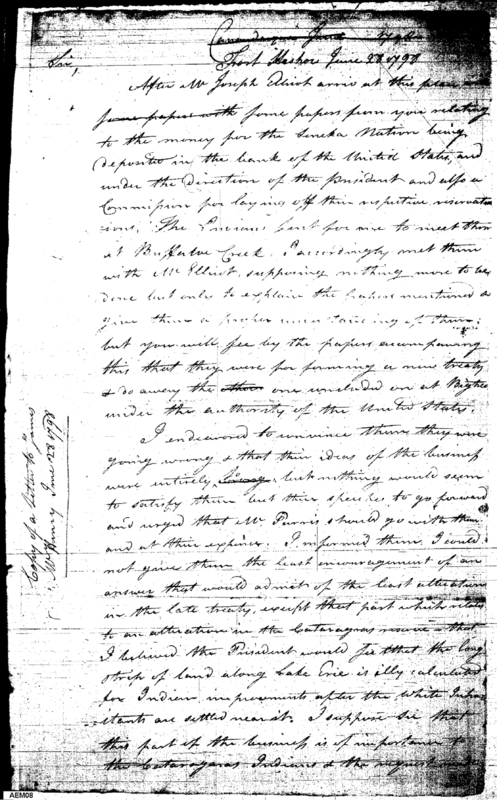 Canandaigua June 1798
Fort Kashor June 28 1798
Sir,
After Mr Joseph Ellicot arrive at this place
some papers with some papers from you relating
to the money for the Seneka Nation being
deposited in the bank of the United States, and
under the direction of the President and also a
Commission for laying off their respective reservat
ions. The Indians sent for me to meet them
at Buffaloe Creek. I accordingly met them
with Mr Ellicot, supposing nothing more to be
done but only to explain the papers mentioned &
give them a proper understanding of them;
but you will see by the papers accompanying
this that they were for forming a new treaty
& do away the other one concluded on at Bigtree
under the authority of the United States.
I endeavored to convince them they were
going wrong & that their ideas of the business
were intirely wrong, but nothing would seem
to satisfy them but their speeches to go forward
and urged that Mr Parris should go with them
and at their expence. I informed them I could
not give them the least encouragement of an
answer that would admit of the least alteration
in the late treaty, except that part which relates
to an alteration in the Cataragras reserve that
I believed the President would see that the long
strip of land along Lake Erie is illy calculated
for Indian improvements after the White Inhab
itants are settled near it. I suppose Sir that
this part of the business is of importance to
the Cataragaras Indians & the request
Copy of a letter to James
McHenry June 28 1798
AEM08